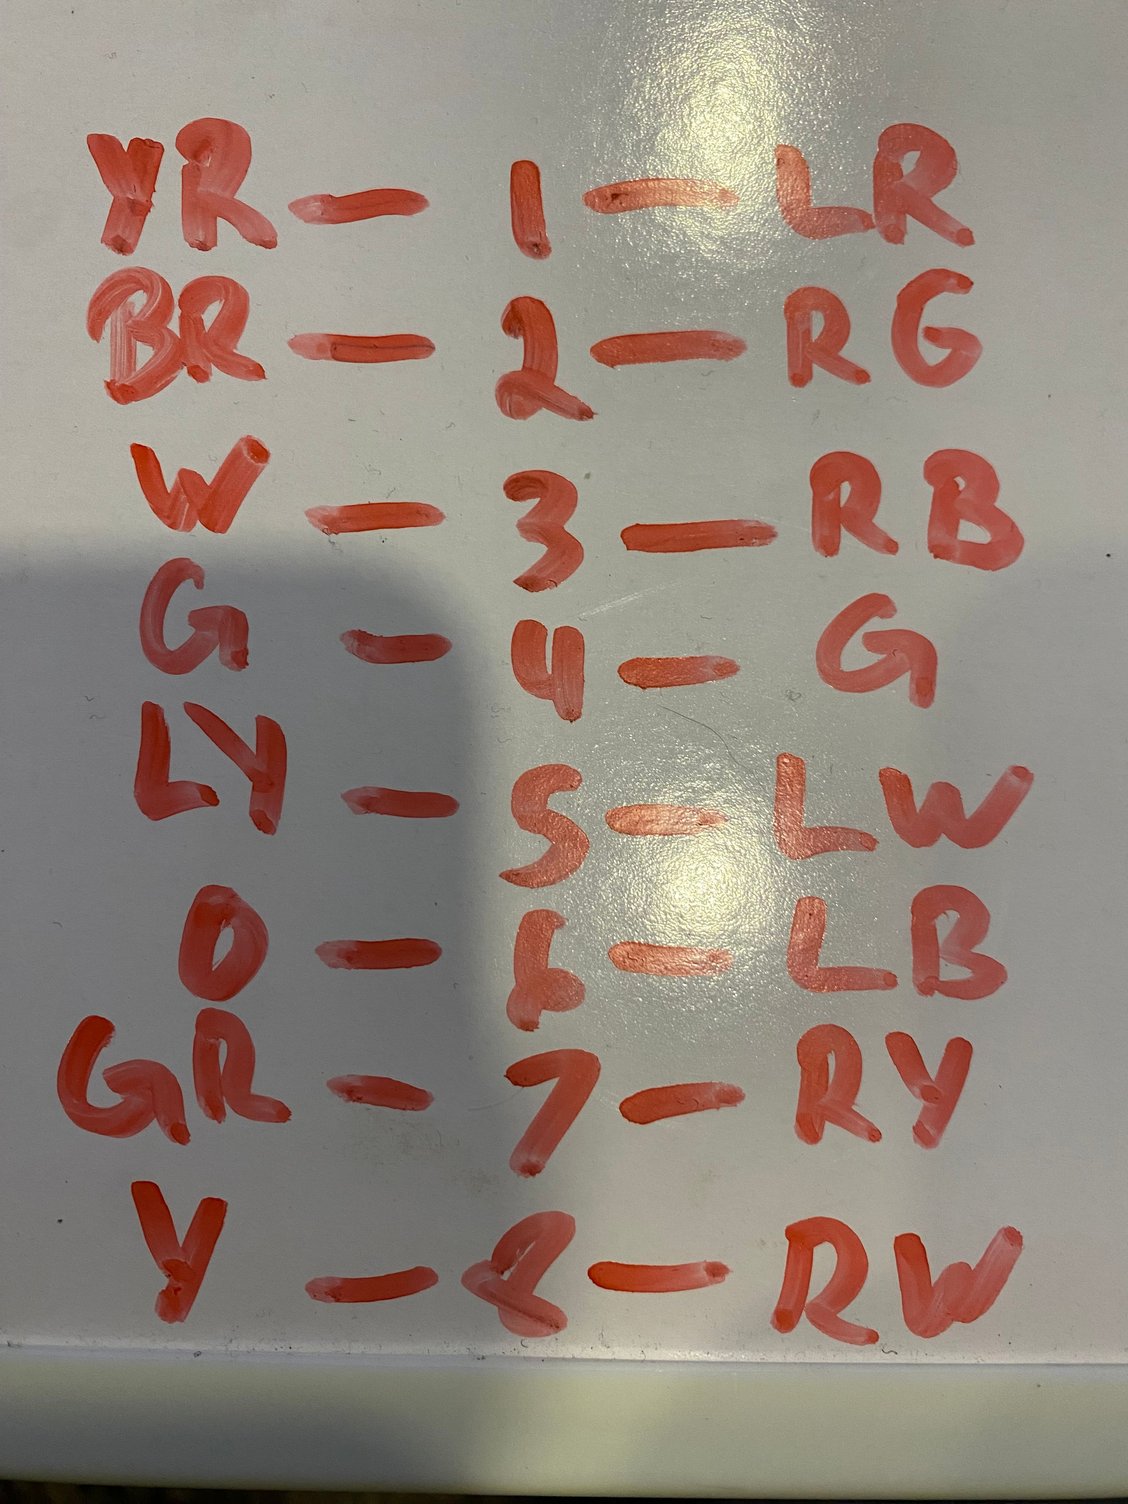 YR - 1 - LR
BR - 2 - RG
W - 3 - RB
G - 4 - G
LY - 5 - LW
O - 6 - LB
GR - 7 - RY
Y - 8 - RW